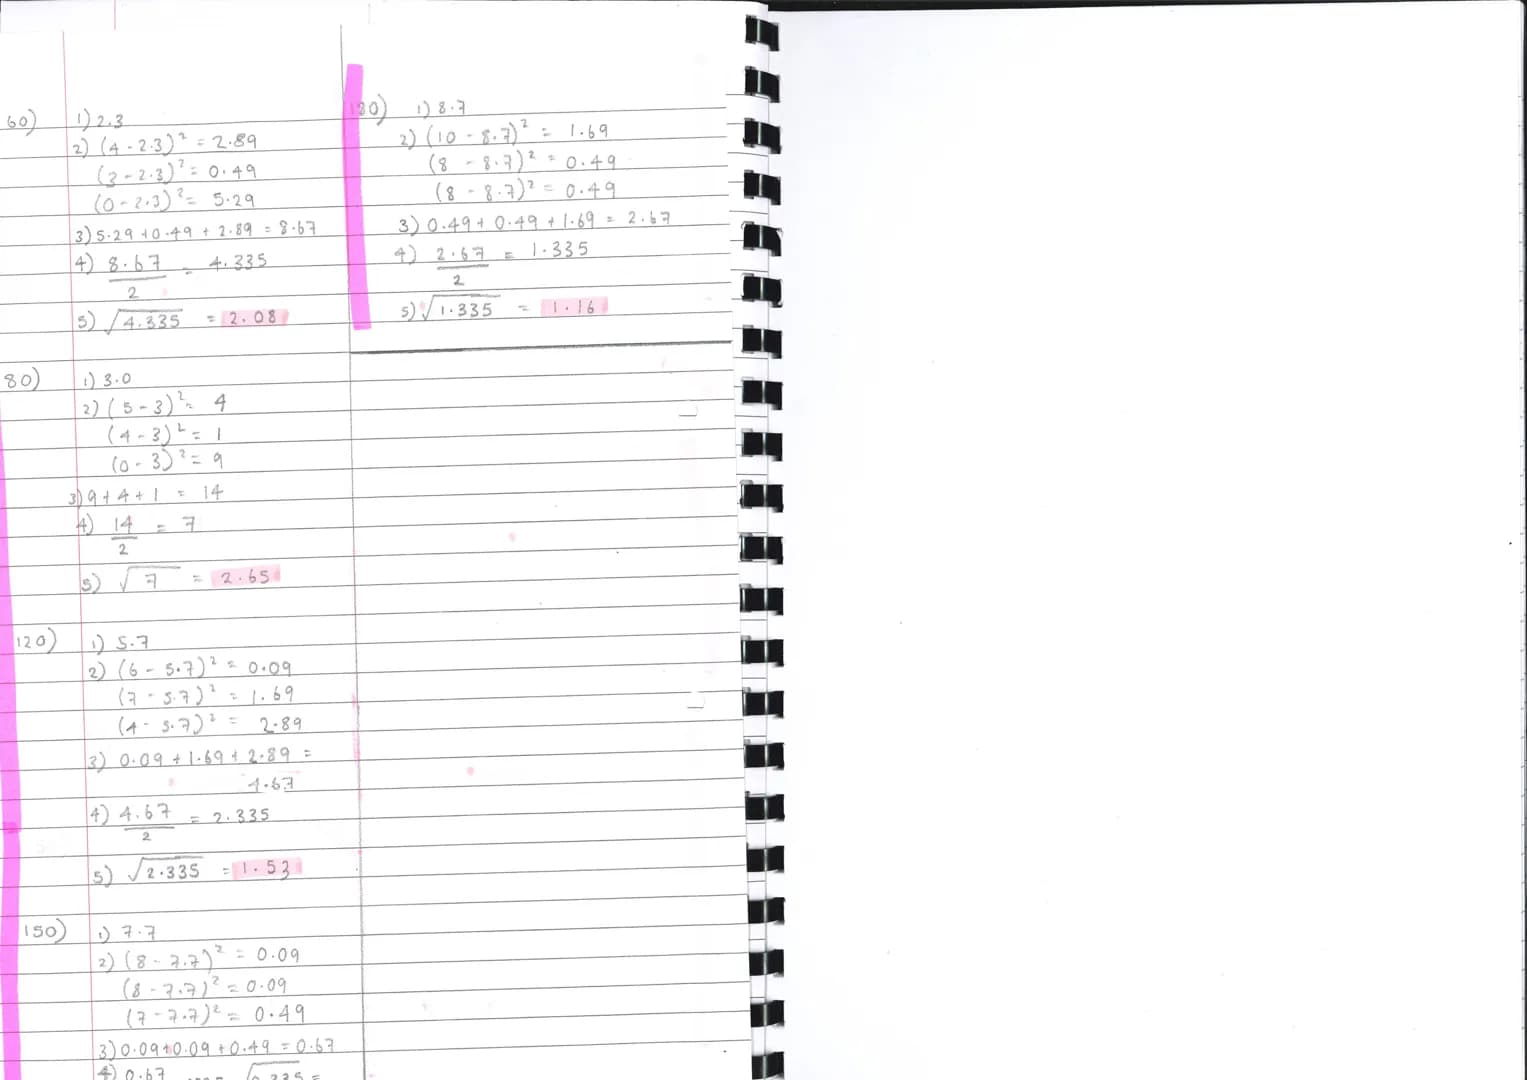 60) 1) 2.3
2) (4 - 2.3)² = 2.89
(3 - 2.3)² = 0.49
(0 - 2.3)² = 5.29
3) 5.29 + 0.49 + 2.89 = 8.67
4) 8.67 / 2 = 4.335
5) √4.335 = 2.08
80) 1) 3.0
2) (5 - 3)² = 4
(4 - 3)² = 1
(0 - 3)² = 9
3) 9 + 4 + 1 = 14
4) 14 / 2 = 7
5) √7 = 2.65
120) 1) 5.7
2) (6 - 5.7)² = 0.09
(7 - 5.7)² = 1.69
(4 - 5.7)² = 2.89
3) 0.09 + 1.69 + 2.89 =
4.67
4) 4.67 / 2 = 2.335
5) √2.335 = 1.53
150) 1) 7.7
2) (8 - 7.7)² = 0.09
(8 - 7.7)² = 0.09
(7 - 7.7)² = 0.49
3) 0.09 + 0.09 + 0.49 = 0.67
4) 0.67
180) 1) 8.7
2) (10 - 8.7)² = 1.69
(8 - 8.7)² = 0.49
(8 - 8.7)² = 0.49
3) 0.49 + 0.49 + 1.69 = 2.67
4) 2.67 / 2 = 1.335
5) √1.335 = 1.16